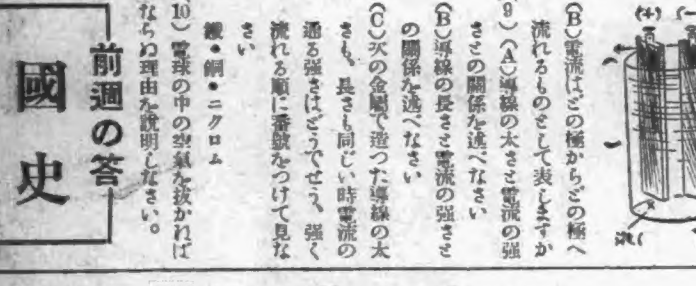 (+) (−)
(B)電流はどの極からどの極へ
流れるものとして表しますか
9)(A)導線の太さと電流の强
さとの關係を述べなさい
(B)導線の長さと電流の强さと
の關係を述べなさい
(C)次の金屬で造つた導線の太
さも、長さも同じい時電流の
通る强さはどうでせう、强く
流れる順に番號をつけて見な
さい
銀・銅・ニクロム
10)電球の中の空氣を拔かれば
ならぬ理由を說明しなさい。
前週の答
國史